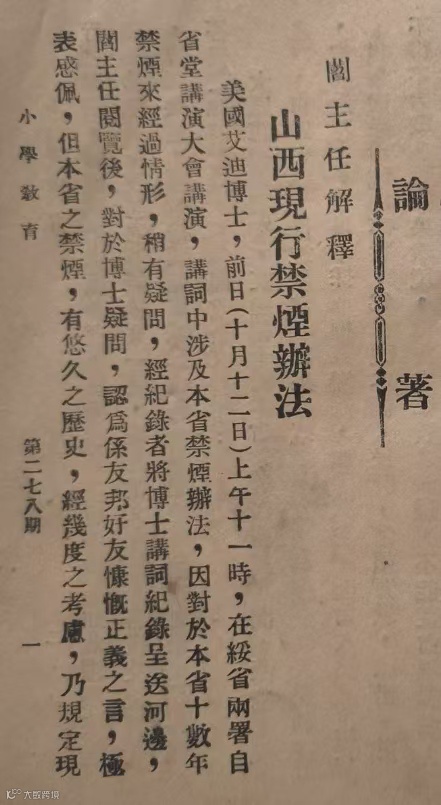 論著
閻主任解釋
山西現行禁煙辦法
美國艾迪博士，前日(十月十二日)上午十一時，在綏省兩署自
省堂講演大會講演，講詞中涉及本省禁煙辦法，因對於本省十數年
禁煙來經過情形，稍有疑問，經紀錄者將博士講詞紀錄呈送河邊，
閻主任閱覽後，對於博士疑問，認爲係友邦好友慷慨正義之言，極
表感佩，但本省之禁煙，有悠久之歷史，經幾度之考慮，乃規定現
小學教育　第二七八期　一
大數跨境